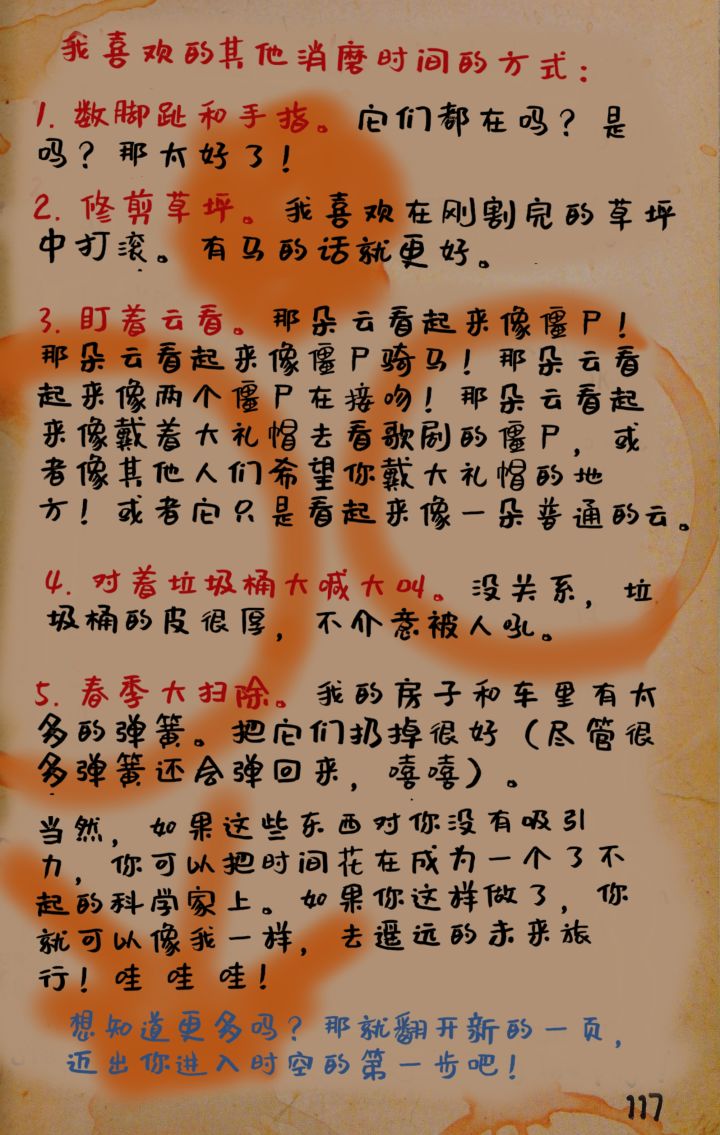 我喜欢的其他消磨时间的方式：
1. 数脚趾和手指。它们都在吗？是
吗？那太好了！
2. 修剪草坪。我喜欢在刚割完的草坪
中打滚。有马的话就更好。
3. 盯着云看。那朵云看起来像僵尸！
那朵云看起来像僵尸骑马！那朵云看
起来像两个僵尸在接吻！那朵云看起
来像戴着大礼帽去看歌剧的僵尸，或
者像其他人们希望你戴大礼帽的地
方！或者它只是看起来像一朵普通的云。
4. 对着垃圾桶大喊大叫。没关系，垃
圾桶的皮很厚，不介意被人吼。
5. 春季大扫除。我的房子和车里有太
多的弹簧。把它们扔掉很好（尽管很
多弹簧还会弹回来，嘻嘻）。
当然，如果这些东西对你没有吸引
力，你可以把时间花在成为一个了不
起的科学家上。如果你这样做了，你
就可以像我一样，去遥远的未来旅
行！哇 哇 哇！
想知道更多吗？那就翻开新的一页，
迈出你进入时空的第一步吧！
117